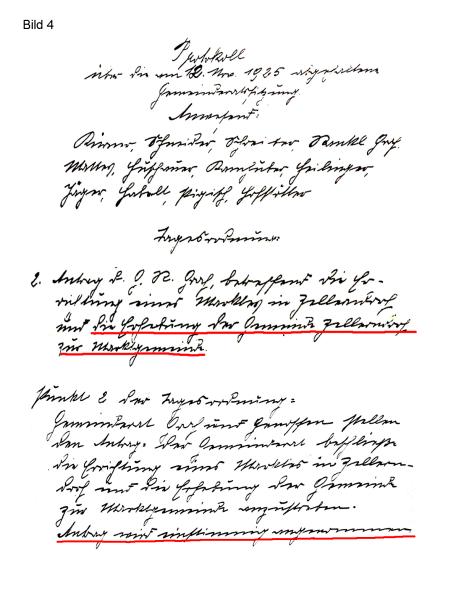 Bild 4
Protokoll
über die am 12. Nov. 1925 abgehaltene
Gemeinderatssitzung
Anwesend:
Schneider, Schreiter, Graf,
Mattes, Heilinger,
Jäger, Hofstötter
Tagesordnung:
2. Antrag d. G. R. Graf, betreffend die Er-
richtung eines Marktes in Zellerndorf
und die Erhebung der Gemeinde Zellerndorf
zur Marktgemeinde.
Punkt 2 der Tagesordnung:
Gemeinderat Graf und Genossen stellen
den Antrag: Der Gemeinderat beschließe
die Errichtung eines Marktes in Zellern-
dorf und die Erhebung der Gemeinde
zur Marktgemeinde anzustreben.
Antrag wird einstimmig angenommen